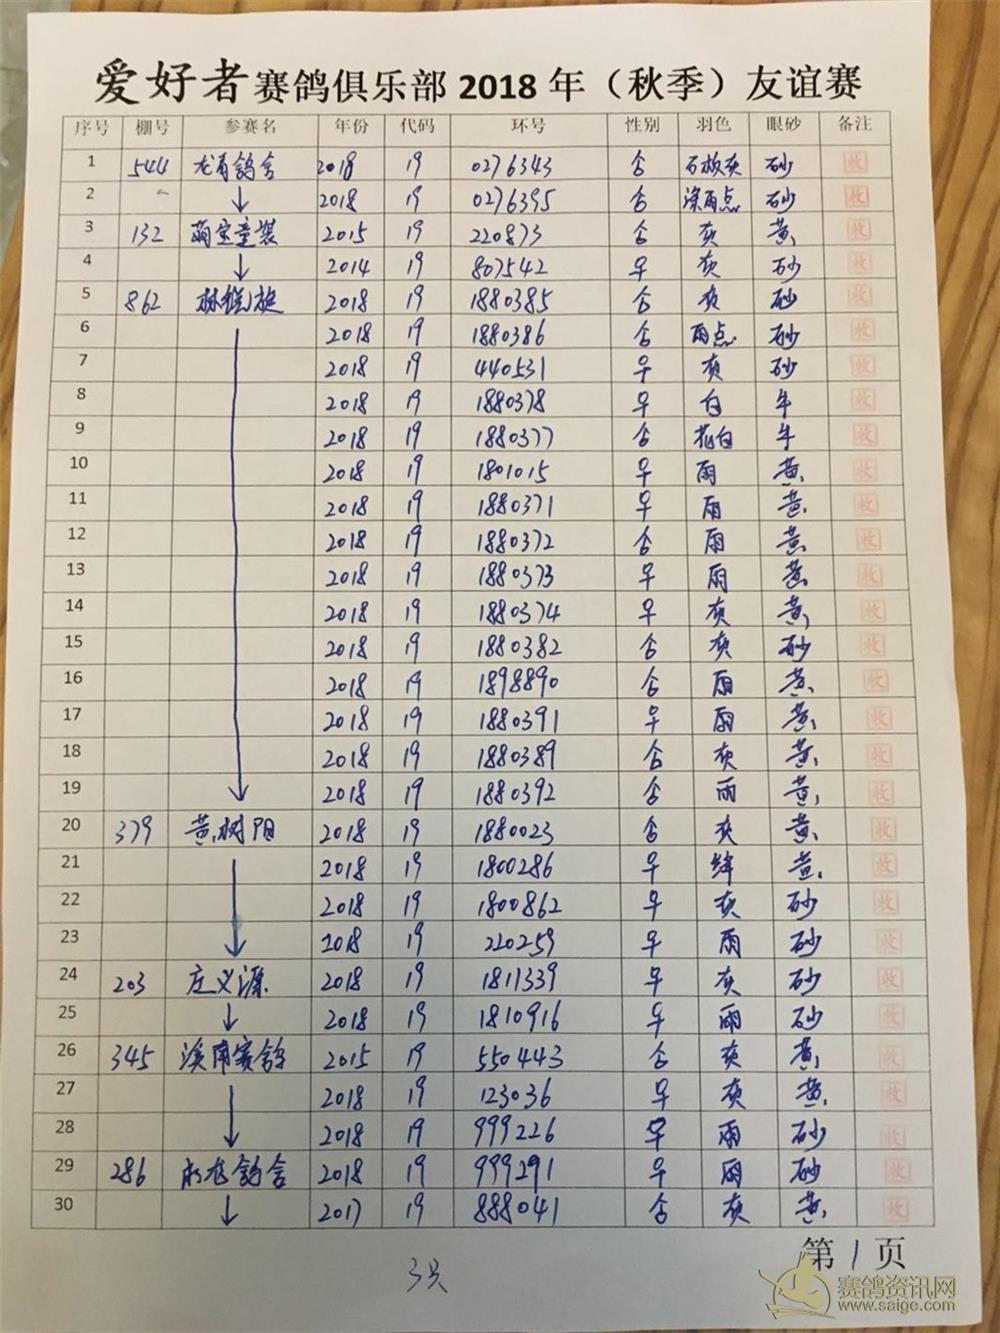 爱好者赛鸽俱乐部 2018 年（秋季）友谊赛
序号 棚号 参赛名 年份 代码 环号 性别 羽色 眼砂 备注
1 544 龙有鸽舍 2018 19 0276343 合 石板灰 砂 收
2 2018 19 0276395 合 深雨点 砂 收
3 132 萌宝童装 2015 19 220873 合 灰 黄 收
4 2014 19 807542 早 灰 砂 收
5 862 2018 19 1880385 合 灰 砂 收
6 2018 19 1880386 合 雨点 砂 收
7 2018 19 440531 早 灰 砂 收
8 2018 19 1880378 早 白 牛 收
9 2018 19 1880377 合 花白 牛 收
10 2018 19 1801015 早 雨 黄 收
11 2018 19 1880371 早 雨 黄 收
12 2018 19 1880372 合 雨 黄 收
13 2018 19 1880373 早 雨 黄 收
14 2018 19 1880374 早 灰 黄 收
15 2018 19 1880382 合 灰 砂 收
16 2018 19 1898890 合 雨 黄 收
17 2018 19 1880391 早 雨 黄 收
18 2018 19 1880389 合 灰 黄 收
19 2018 19 1880392 合 雨 黄 收
20 379 黄树阳 2018 19 1880023 合 灰 黄 收
21 2018 19 1800286 早 绛 黄 收
22 2018 19 1800862 早 灰 砂 收
23 2018 19 220259 早 雨 砂 收
24 203 庄义源 2018 19 1811339 早 灰 砂 收
25 2018 19 1810916 早 雨 砂 收
26 345 溪南赛鸽 2015 19 550443 合 灰 黄 收
27 2018 19 123036 早 灰 黄 收
28 2018 19 999226 早 雨 砂 收
29 286 龙鸽舍 2018 19 999291 早 雨 砂 收
30 2017 19 888041 合 灰 黄 收
第 1 页
3只
赛鸽资讯网
www.saige.com